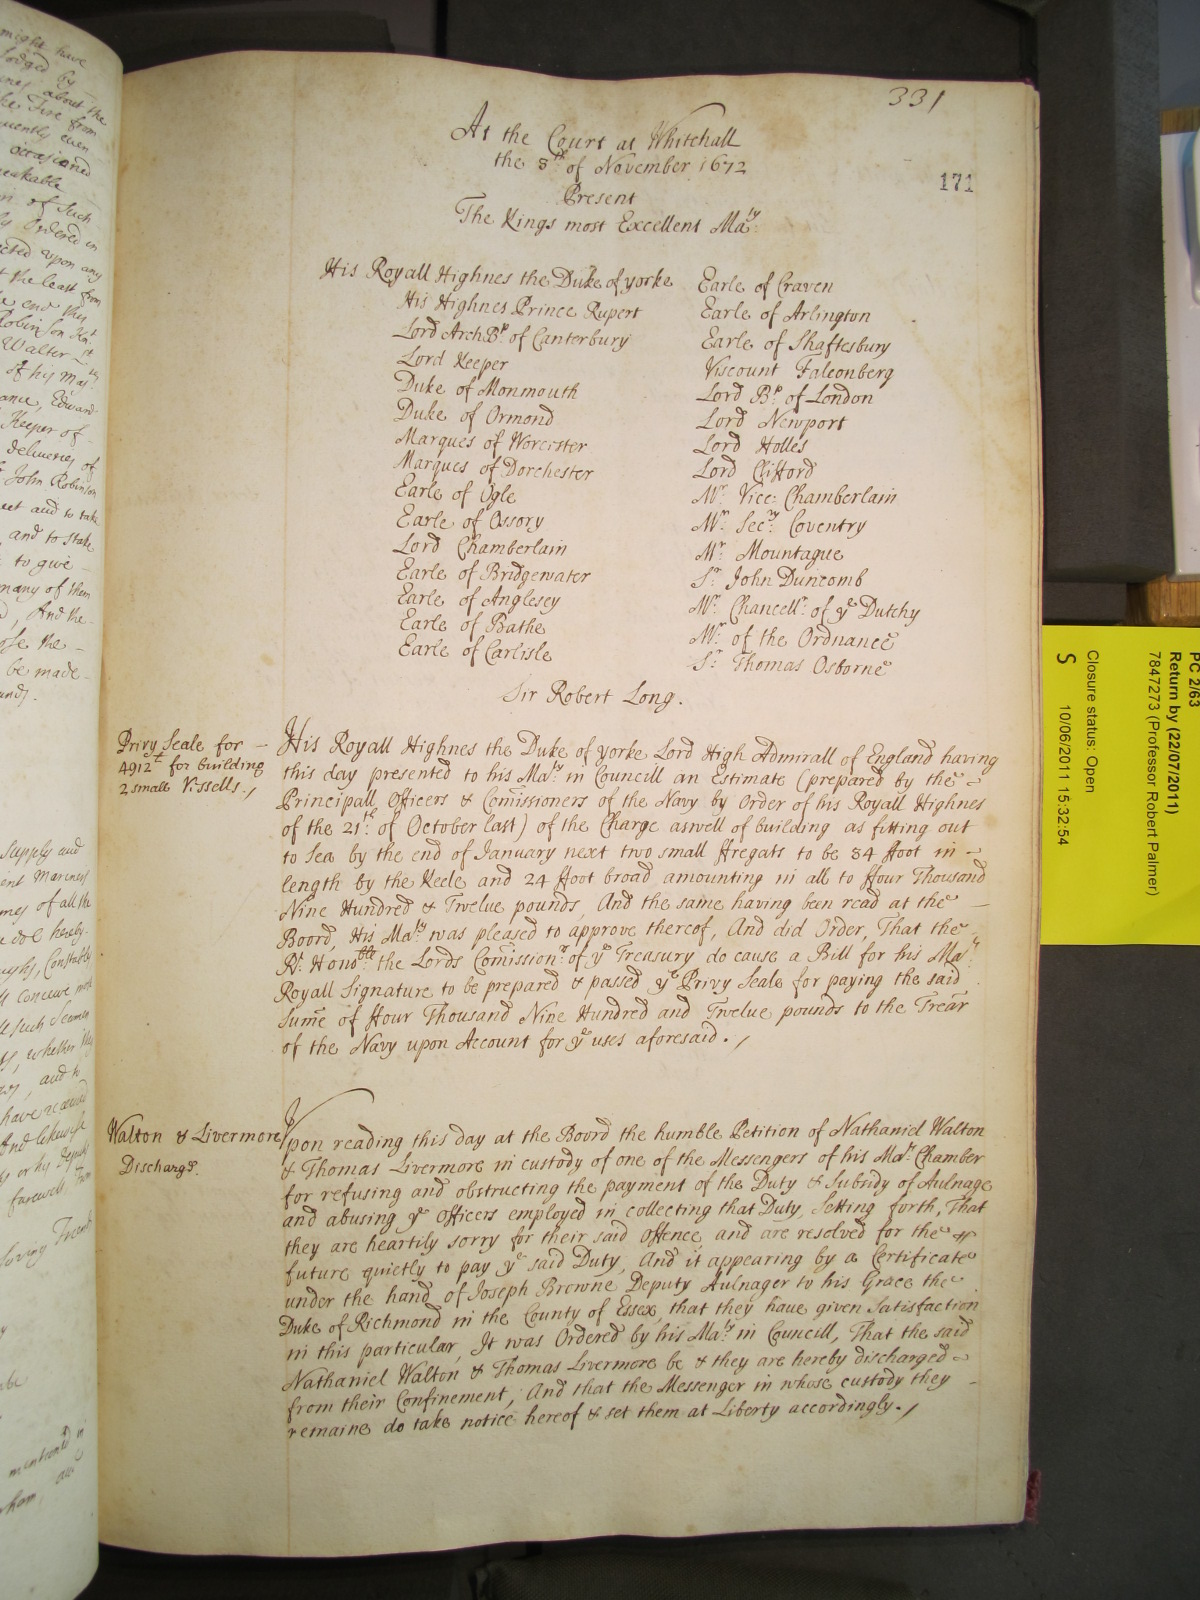 331
171
At the Court at Whitehall
the 8th of November 1672
Present
The Kings most Excellent Maty:
His Royall Highnes the Duke of yorke
His Highnes Prince Rupert
Lord ArchBp. of Canterbury
Lord Keeper
Duke of Monmouth
Duke of Ormond
Marques of Worcester
Marques of Dorchester
Earle of Ogle
Earle of Ossory
Lord Chamberlain
Earle of Bridgewater
Earle of Anglesey
Earle of Bathe
Earle of Carlisle
Earle of Craven
Earle of Arlington
Earle of Shaftesbury
Viscount Falconberg
Lord Bp. of London
Lord Newport
Lord Holles
Lord Clifford
Mr. Vice: Chamberlain
Mr. Secry. Coventry
Mr. Mountague
Sr. John Duncomb
Mr. Chancellr. of ye Dutchy
Mr. of the Ordnance
Sr. Thomas Osborne
Sir Robert Long.
Privy Seale for –
4912£ for building
2 small Vessells./
His Royall Highnes the Duke of yorke Lord High Admirall of England having
this day presented to his Maty. in Councill an Estimate (prepared by the
Principall Officers & Comissioners of the Navy by Order of his Royall Highnes
of the 21th. of October last) of the Charge aswell of building as fitting out
to Sea by the end of January next two small ffregats to be 84 ffoot in –
length by the Keele and 24 ffoot broad amounting in all to ffour Thousand
Nine Hundred & Twelve pounds, And the same having been read at the –
Boord, His Maty. was pleased to approve thereof, And did Order, That the
Rt. Honoble the Lords Comissionrs. of ye Treasury do cause a Bill for his Maty.
Royall Signature to be prepared & passed ye Privy Seale for paying the said
Sume of ffour Thousand Nine Hundred and Twelve pounds to the Trear
of the Navy upon Account for ye uses aforesaid./
Walton & Livermore
Discharge.
Upon reading this day at the Boord the humble Petition of Nathaniel Walton
& Thomas Livermore in custody of one of the Messengers of his Maty. Chamber
for refusing and obstructing the payment of the Duty & Subsidy of Aulnage
and abusing ye Officers employed in collecting that Duty, Setting forth, That
they are heartily sorry for their said Offence, and are resolved for the
future quietly to pay ye said Duty, And it appearing by a Certificate
under the hand of Joseph Browne Deputy Aulnager to his Grace the
Duke of Richmond in the County of Essex, that they have given Satisfaction
in this particular, It was Ordered by his Maty. in Councill, That the said
Nathaniel Walton & Thomas Livermore be & they are hereby discharged
from their Confinement, And that the Messenger in whose custody they –
remaine do take notice hereof & set them at Liberty accordingly./
PC 2/63
Return by (22/07/2011)
7847273 (Professor Robert Palmer)
Closure status: Open
S 10/06/2011 15:32:54